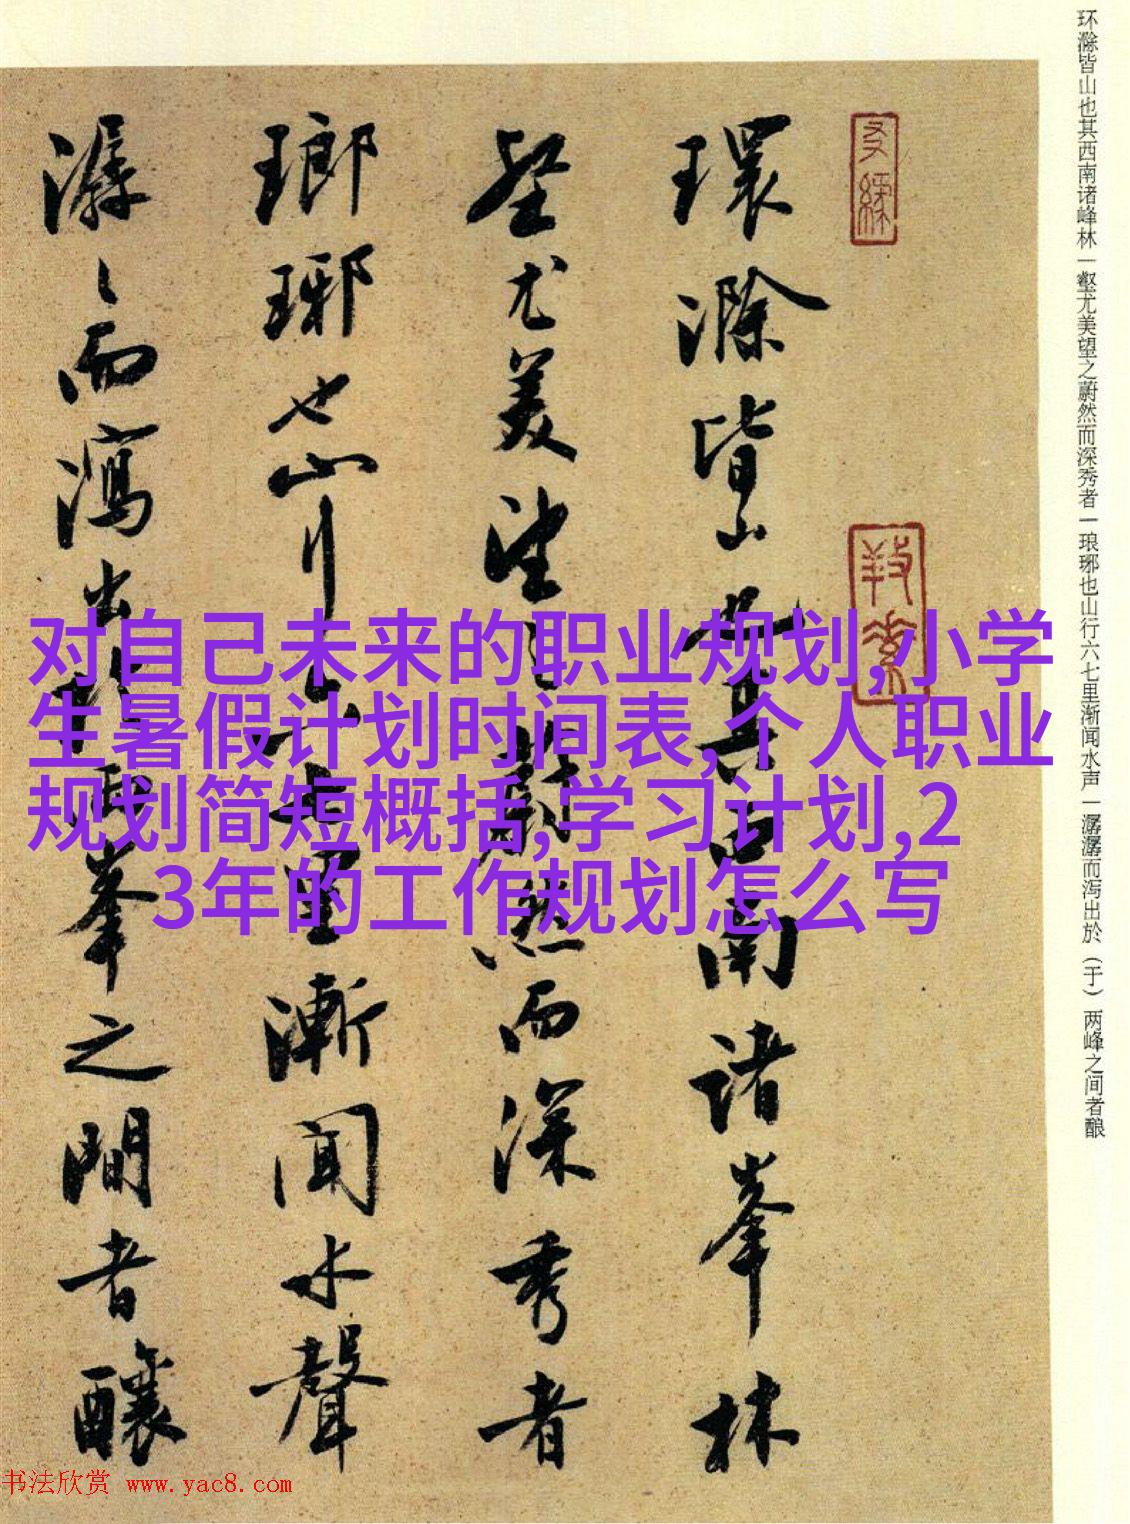 环滁皆山也其西南诸峰林一壑尤美望之蔚然而深秀者一琅琊也山行六七里渐闻水声一潺潺而泻出於（于）两峰之间者酿
環滁皆山也其西南諸峯林
壑尤美望之蔚然而深秀者
瑯琊也山行六七里漸聞水聲
潺々而瀉出於兩峯之間者釀
对自己未来的职业规划,小学
生暑假计划时间表,个人职业
规划简短概括,学习计划,2
3年的工作规划怎么写
书法欣赏 www.yac8.com